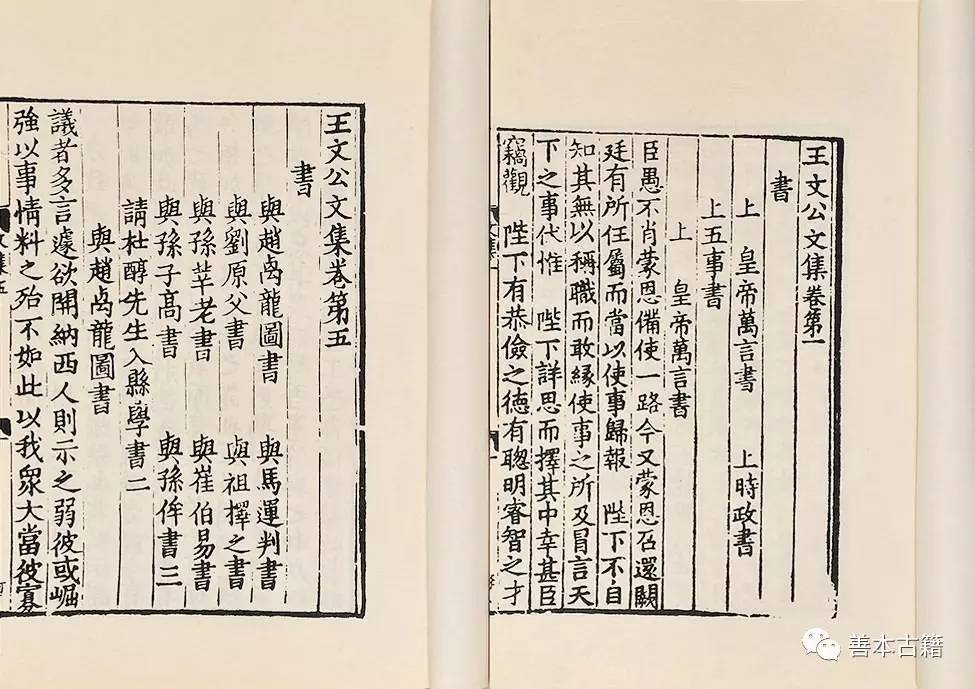 王文公文集卷第一
書
上　皇帝萬言書　上時政書
上五事書
上　皇帝萬言書
臣愚不肖蒙恩備使一路今又蒙恩召還闕
廷有所任屬而當以使事歸報　陛下不自
知其無以稱職而敢緣使事之所及冒言天
下之事代惟　陛下詳思而擇其中幸甚臣
竊觀　陛下有恭儉之德有聰明睿智之才
文集一
王文公文集卷第五
書
與趙卨龍圖書　與馬運判書
與劉原父書　與祖擇之書
與孫莘老書　與崔伯易書
與孫子高書　與孫侔書三
請杜醇先生入縣學書二
與趙卨龍圖書
議者多言遽欲開納西人則示之弱彼或崛
強以事情料之殆不如此以我衆大當彼寡
文集五
善本古籍